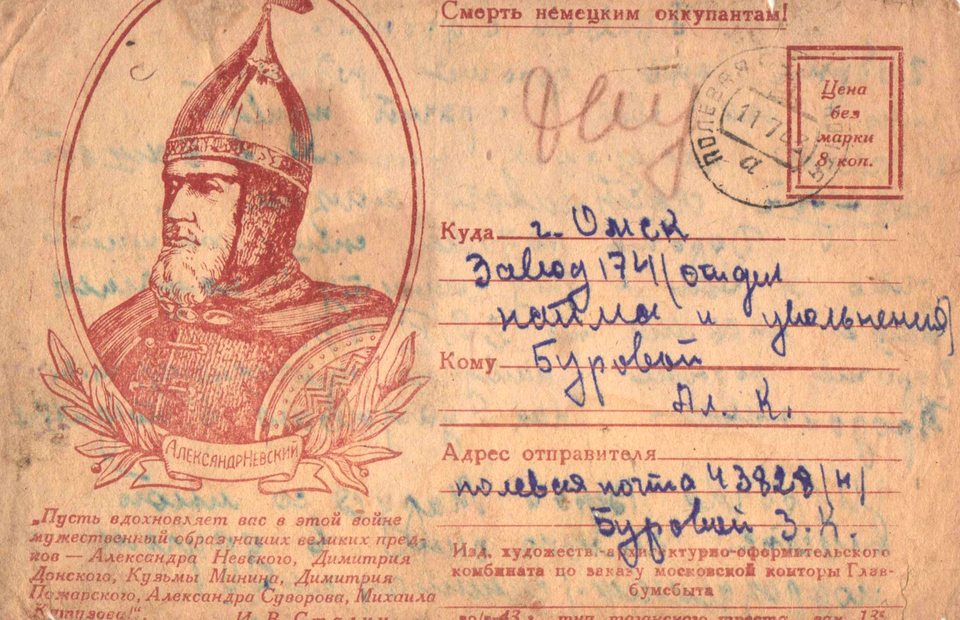 Смерть немецким оккупантам!
ПОЛЕВАЯ
11 7
а
Цена
без
марки
8 коп.
Куда г. Омск
Завод 174 (отдел
найма и увольнения)
Кому Буровой
Ал. К.
Адрес отправителя
полевая почта 43828/н/
Буровой З. К.
АЛЕКСАНДР НЕВСКИЙ
„Пусть вдохновляет вас в этой войне
мужественный образ наших великих пред-
ков — Александра Невского, Димитрия
Донского, Кузьмы Минина, Димитрия
Пожарского, Александра Суворова, Михаила
Кутузова!“ И. В. Сталин
Изд. художеств.-архитектурно-оформительского
комбината по заказу московской конторы Глав-
бумсбыта